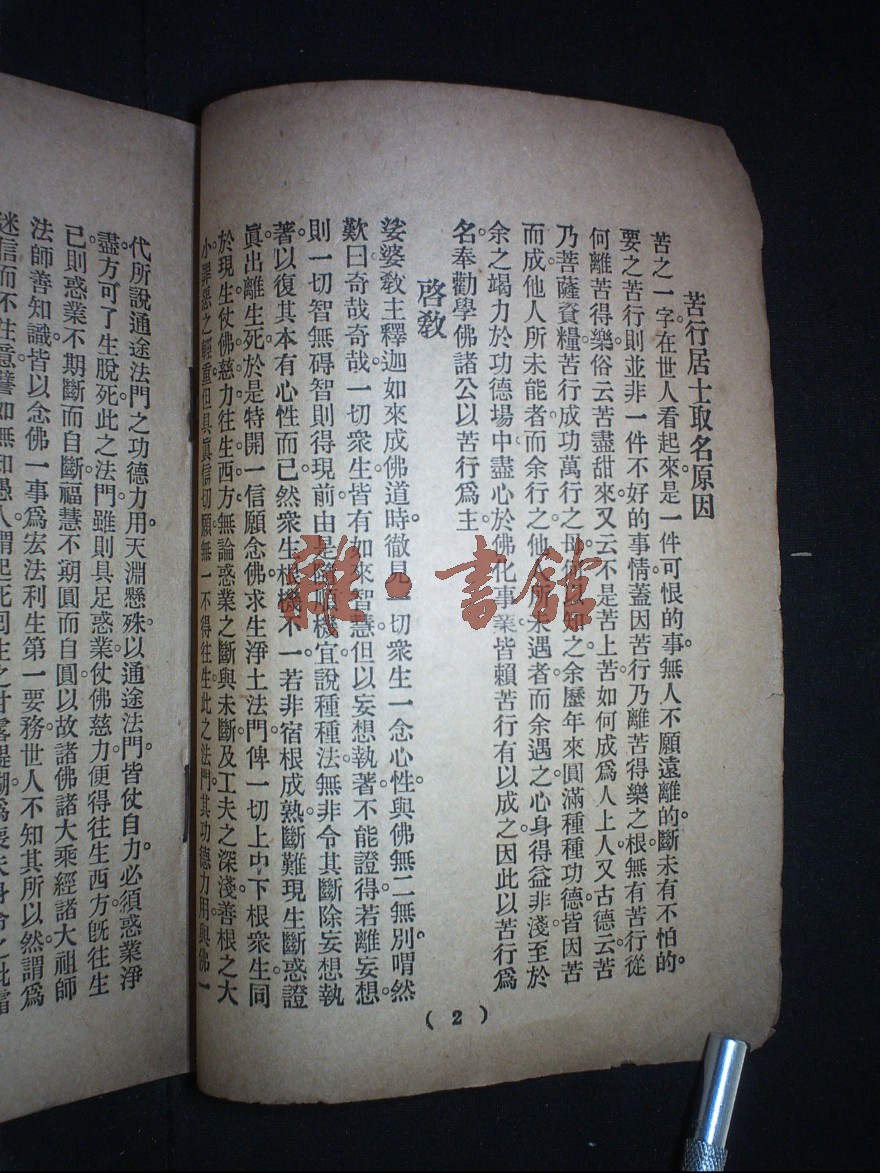 苦行居士取名原因
苦之一字。在世人看起來。是一件可恨的事。無人不願遠離的。斷未有不怕的。
要之苦行。則並非一件不好的事情。蓋因苦行乃離苦得樂之根。無有苦行。從
何離苦得樂。俗云苦盡甜來。又云不是苦上苦。如何成爲人上人。又古德云。苦
乃菩薩資糧。苦行成功萬行之母。
余歷年來圓滿種種功德。皆因苦
而成。他人所未能者。而余行之。他人所未遇者。而余遇之。心身得益非淺。至於
余之竭力於功德場中。盡心於佛化事業。皆賴苦行有以成之。因此以苦行爲
名。奉勸學佛諸公以苦行爲主。
啓教
娑婆教主釋迦如來成佛道時。徹見一切衆生一念心性。與佛無二無別。喟然
歎曰。奇哉奇哉。一切衆生皆有如來智慧。但以妄想執著。不能證得。若離妄想。
則一切智無碍智則得現前。由是隨順機宜。說種種法。無非令其斷除妄想執
著。以復其本有心性而已。然衆生根機不一。若非宿根成熟。斷難現生斷惑證
眞。出離生死。於是特開一信願念佛求生淨土法門。俾一切上中下根衆生。同
於現生仗佛慈力。往生西方。無論惑業之斷與未斷。及工夫之深淺。善根之大
小。罪惡之輕重。但具眞信切願。無一不得往生。此之法門。其功德力用。與佛一
代所說通途法門之功德力用。天淵懸殊。以通途法門。皆仗自力。必須惑業淨
盡。方可了生脫死。此之法門。雖則具足惑業。仗佛慈力。便得往生西方。旣往生
已。則惑業不期斷而自斷。福慧不期圓而自圓。以故諸佛諸大乘經諸大祖師
法師善知識。皆以念佛一事。爲宏法利生第一要務。世人不知其所以然。謂爲
迷信而不注意。譬如無知愚人。謂起死回生之甘露醍醐。爲喪失身命之砒霜
( 2 )
雜·書館